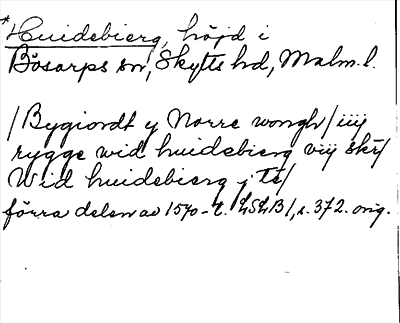 *Huidebierg, höjd i
Bösarps sn, Skytts hd, Malm. l.
/Bygiordt y Norre wongh/ iiij
rygge wid huidebierg viij skr/
Wid huidebierg j te/
förra delen av 1570-t. LSLB1, s. 372. orig.